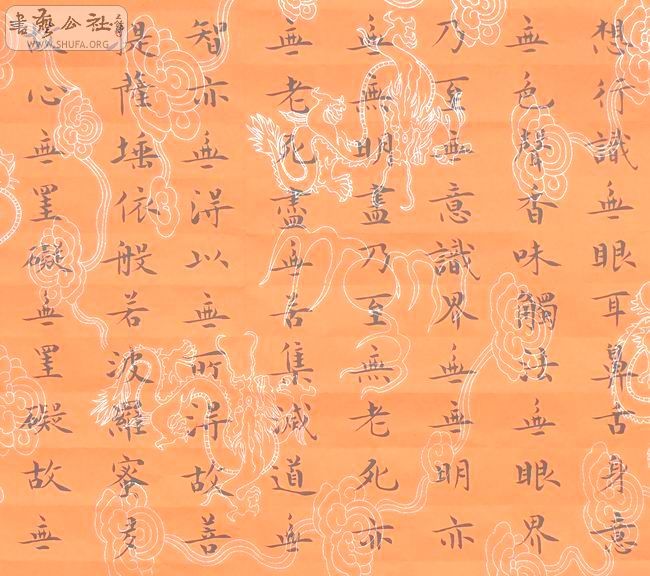 書藝公社
WWW.SHUFA.ORG
想行識無眼耳鼻舌身意
無色聲香味觸法無眼界
乃至無意識界無無明亦
無無明盡乃至無老死亦
無老死盡無苦集滅道無
智亦無得以無所得故菩
提薩埵依般若波羅蜜多
故心無罣礙無罣礙故無